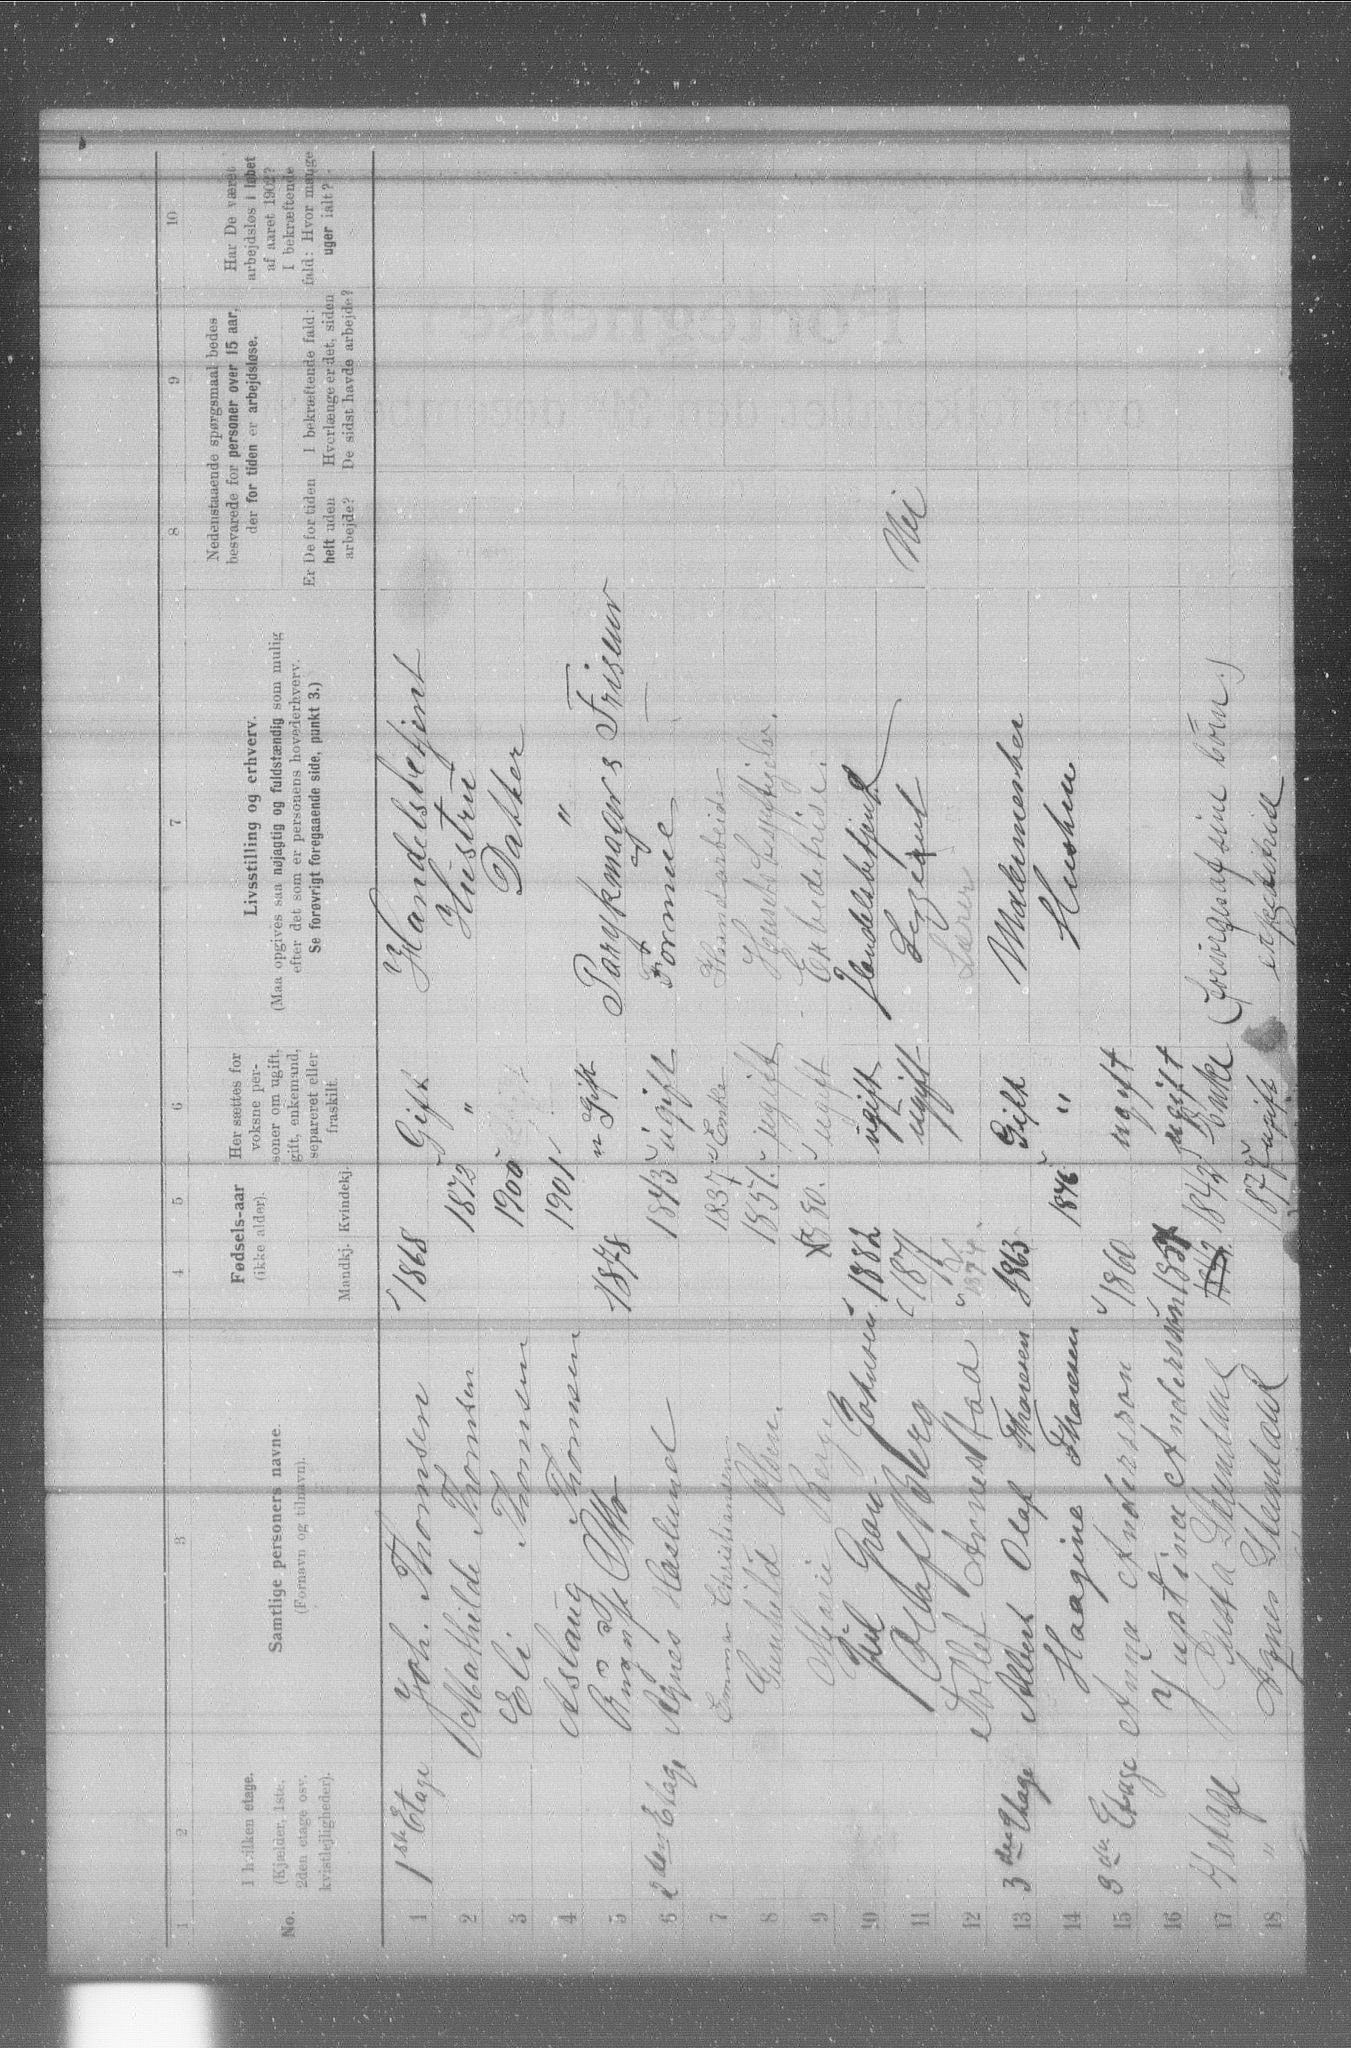 1
2
3
4
5
6
7
8
9
10
No.
I hvilken etage.
(Kjælder, 1ste,
2den etage osv.
kvistlejligheder).
Samtlige personers navne.
(Fornavn og tilnavn).
Fødsels-aar
(ikke alder).
Mandkj. Kvindekj.
Her sættes for
voksne per-
soner om ugift,
gift, enkemand,
separeret eller
fraskilt.
Livsstilling og erhverv.
(Maa opgives saa nøjagtig og fuldstændig som mulig
efter det som er personens hovederhverv.
Se forøvrigt foregaaende side, punkt 3.)
Nedenstaaende spørgsmaal bedes
besvarede for personer over 15 aar,
der for tiden er arbejdsløse.
Er De for tiden
helt uden
arbejde?
I bekræftende fald:
Hvorlænge er det, siden
De sidst havde arbejde?
Har De været
arbejdsløs i løbet
af aaret 1902?
I bekræftende
fald: Hvor mange
uger ialt?
1 1ste Etage Joh. Thomsen 1868 Gift Handelsbetjent
2 Mathilde Thomsen 1873 " Hustru
3 Eli Thomsen 1900 Datter
4 Aslaug Thomsen 1901 "
5 Otto 1878 Gift Parykmager & Friseur
6 2den Etage Agnes Haslund 1843 ugift Fornme
7 Emma Christiansen 1837 Enke Haandarbeide
8 Gunhild Olsen. 1857. ugift
9 Marie Berg 1880. ugift
10 Juul Johnsen 1882 ugift Handelsbetjent
11 Olaf Berg 187 ugift Nei
12 Tollef Arnestad 1874. Lærer
13 3die Etage Albert Olaf Thoresen 1863 Gift
14 Haagine Thoresen 1846 " Hustru
15 3die Etage Anna Andersson 1860 ugift
16 Justina Andersson 185 ugift
17 4 etage 1842 Enke (forsørges af sine børn.)
18 " Agnes 1877 ugift